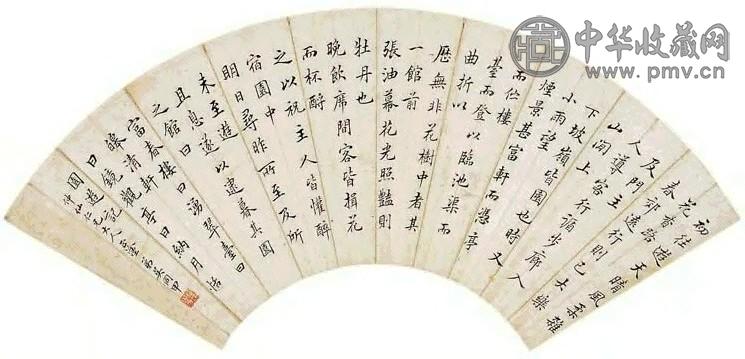 初往遊天晴風柔雜
花香路
春郊遠則已大樂
及門主行
人導行循步廊入
山間上客
下坡嶺皆園也時又
小雨望
煙景甚富軒而憑亭
而佇樓
臺而登以臨池渠而
曲折以
歷無非花樹中者其
一館前
張油幕花光照豔則
牡丹也
晚飲席間客皆揖花
而杯酹
之以祝主人皆懽醉
宿園中
明日尋昨所至及所
未至遊以逮暮其園
且息遂曰湧翠臺曰
之館春樓曰納月
富清觀亭曰
曰鏡軒
園遊記
仲仁仁兄大人正
弟吳同甲
中华收藏网
www.pmv.cn